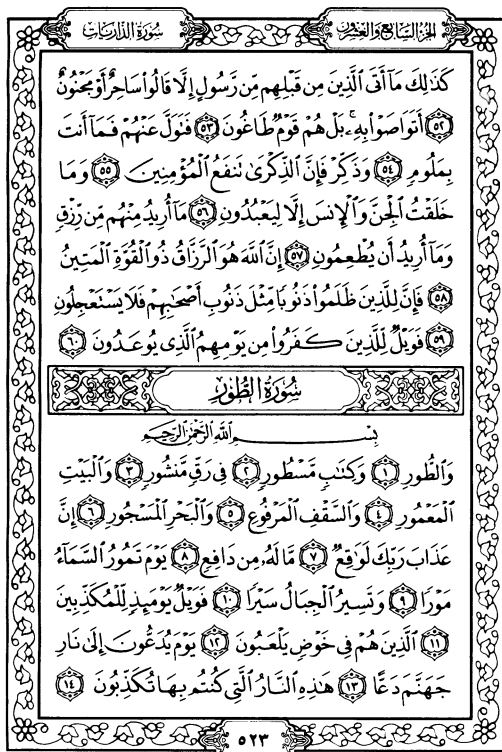 الجزء السابع والعشرون
سورة الذاريات
كَذَٰلِكَ مَآ أَتَى ٱلَّذِينَ مِن قَبۡلِهِم مِّن رَّسُولٍ إِلَّا قَالُواْ سَاحِرٌ أَوۡ مَجۡنُونٌ
٥٢ أَتَوَاصَوۡاْ بِهِۦۚ بَلۡ هُمۡ قَوۡمٞ طَاغُونَ ٥٣ فَتَوَلَّ عَنۡهُمۡ فَمَآ أَنتَ
بِمَلُومٖ ٥٤ وَذَكِّرۡ فَإِنَّ ٱلذِّكۡرَىٰ تَنفَعُ ٱلۡمُؤۡمِنِينَ ٥٥ وَمَا
خَلَقۡتُ ٱلۡجِنَّ وَٱلۡإِنسَ إِلَّا لِيَعۡبُدُونِ ٥٦ مَآ أُرِيدُ مِنۡهُم مِّن رِّزۡقٖ
وَمَآ أُرِيدُ أَن يُطۡعِمُونِ ٥٧ إِنَّ ٱللَّهَ هُوَ ٱلرَّزَّاقُ ذُو ٱلۡقُوَّةِ ٱلۡمَتِينُ
٥٨ فَإِنَّ لِلَّذِينَ ظَلَمُواْ ذَنُوبٗا مِّثۡلَ ذَنُوبِ أَصۡحَٰبِهِمۡ فَلَا يَسۡتَعۡجِلُونِ
٥٩ فَوَيۡلٞ لِّلَّذِينَ كَفَرُواْ مِن يَوۡمِهِمُ ٱلَّذِي يُوعَدُونَ ٦٠
سورة الطور
بِسۡمِ ٱللَّهِ ٱلرَّحۡمَٰنِ ٱلرَّحِيمِ
وَٱلطُّورِ ١ وَكِتَٰبٖ مَّسۡطُورٖ ٢ فِي رَقّٖ مَّنشُورٖ ٣ وَٱلۡبَيۡتِ
ٱلۡمَعۡمُورِ ٤ وَٱلسَّقۡفِ ٱلۡمَرۡفُوعِ ٥ وَٱلۡبَحۡرِ ٱلۡمَسۡجُورِ ٦ إِنَّ
عَذَابَ رَبِّكَ لَوَٰقِعٞ ٧ مَّا لَهُۥ مِن دَافِعٖ ٨ يَوۡمَ تَمُورُ ٱلسَّمَآءُ
مَوۡرٗا ٩ وَتَسِيرُ ٱلۡجِبَالُ سَيۡرٗا ١٠ فَوَيۡلٞ يَوۡمَئِذٖ لِّلۡمُكَذِّبِينَ
١١ ٱلَّذِينَ هُمۡ فِي خَوۡضٖ يَلۡعَبُونَ ١٢ يَوۡمَ يُدَعُّونَ إِلَىٰ نَارِ
جَهَنَّمَ دَعًّا ١٣ هَٰذِهِ ٱلنَّارُ ٱلَّتِي كُنتُم بِهَا تُكَذِّبُونَ ١٤
٥٢٣